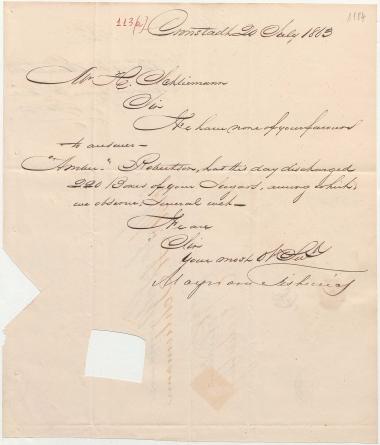 113(a) Cronstadt 20 July 1863 1184
Mr H. Schliemann
Sir
We have none of your favours
to answer —
"Amber" Robertson, has this day discharged
220 Boxes of your Sugars, among which
we observe several wet —
We are
Sir
Your most Ob St
Maynard